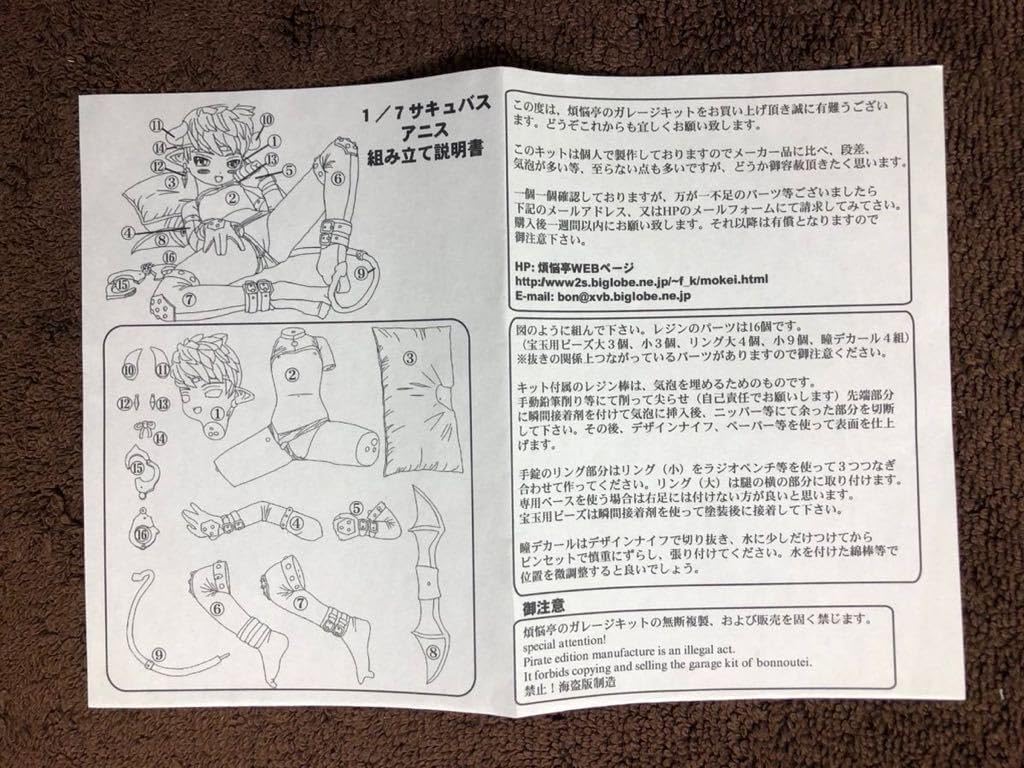 1／7サキュバス
アニス
組み立て説明書
⑪
⑩
⑭
①
⑫
⑬
③
⑤
⑥
②
④
⑧
⑯
⑨
⑮
⑦
⑩
⑪
②
③
⑫
⑬
①
⑭
⑮
④
⑤
⑯
⑥
⑦
⑧
⑨
この度は、煩悩亭のガレージキットをお買い上げ頂き誠に有難うござい
ます。どうぞこれからも宜しくお願い致します。
このキットは個人で製作しておりますのでメーカー品に比べ、段差、
気泡が多い等、至らない点も多いですが、どうか御容赦頂きたく思います。
一個一個確認しておりますが、万が一不足のパーツ等ございましたら
下記のメールアドレス、又はHPのメールフォームにて請求してみてください。
購入後一週間以内にお願い致します。それ以降は有償となりますので
御注意下さい。
HP: 煩悩亭WEBページ
http:/www2s.biglobe.ne.jp/~f_k/mokei.html
E-mail: bon@xvb.biglobe.ne.jp
図のように組んで下さい。レジンのパーツは16個です。
（宝玉用ビーズ大３個、小３個、リング大４個、小９個、瞳デカール４組）
※抜きの関係上つながっているパーツがありますので御注意ください。
キット付属のレジン棒は、気泡を埋めるためのものです。
手動鉛筆削り等にて削って尖らせ（自己責任でお願いします）先端部分
に瞬間接着剤を付けて気泡に挿入後、ニッパー等にて余った部分を切断
して下さい。その後、デザインナイフ、ペーパー等を使って表面を仕上
げます。
手錠のリング部分はリング（小）をラジオペンチ等を使って３つつなぎ
合わせて作ってください。リング（大）は腿の横の部分に取り付けます。
専用ベースを使う場合は右足には付けない方が良いと思います。
宝玉用ビーズは瞬間接着剤を使って塗装後に接着して下さい。
瞳デカールはデザインナイフで切り抜き、水に少しだけつけてから
ピンセットで慎重にずらし、張り付けてください。水を付けた綿棒等で
位置を微調整すると良いでしょう。
御注意
煩悩亭のガレージキットの無断複製、および販売を固く禁じます。
special attention!
Pirate edition manufacture is an illegal act.
It forbids copying and selling the garage kit of bonnoutei.
禁止！海盗版制造